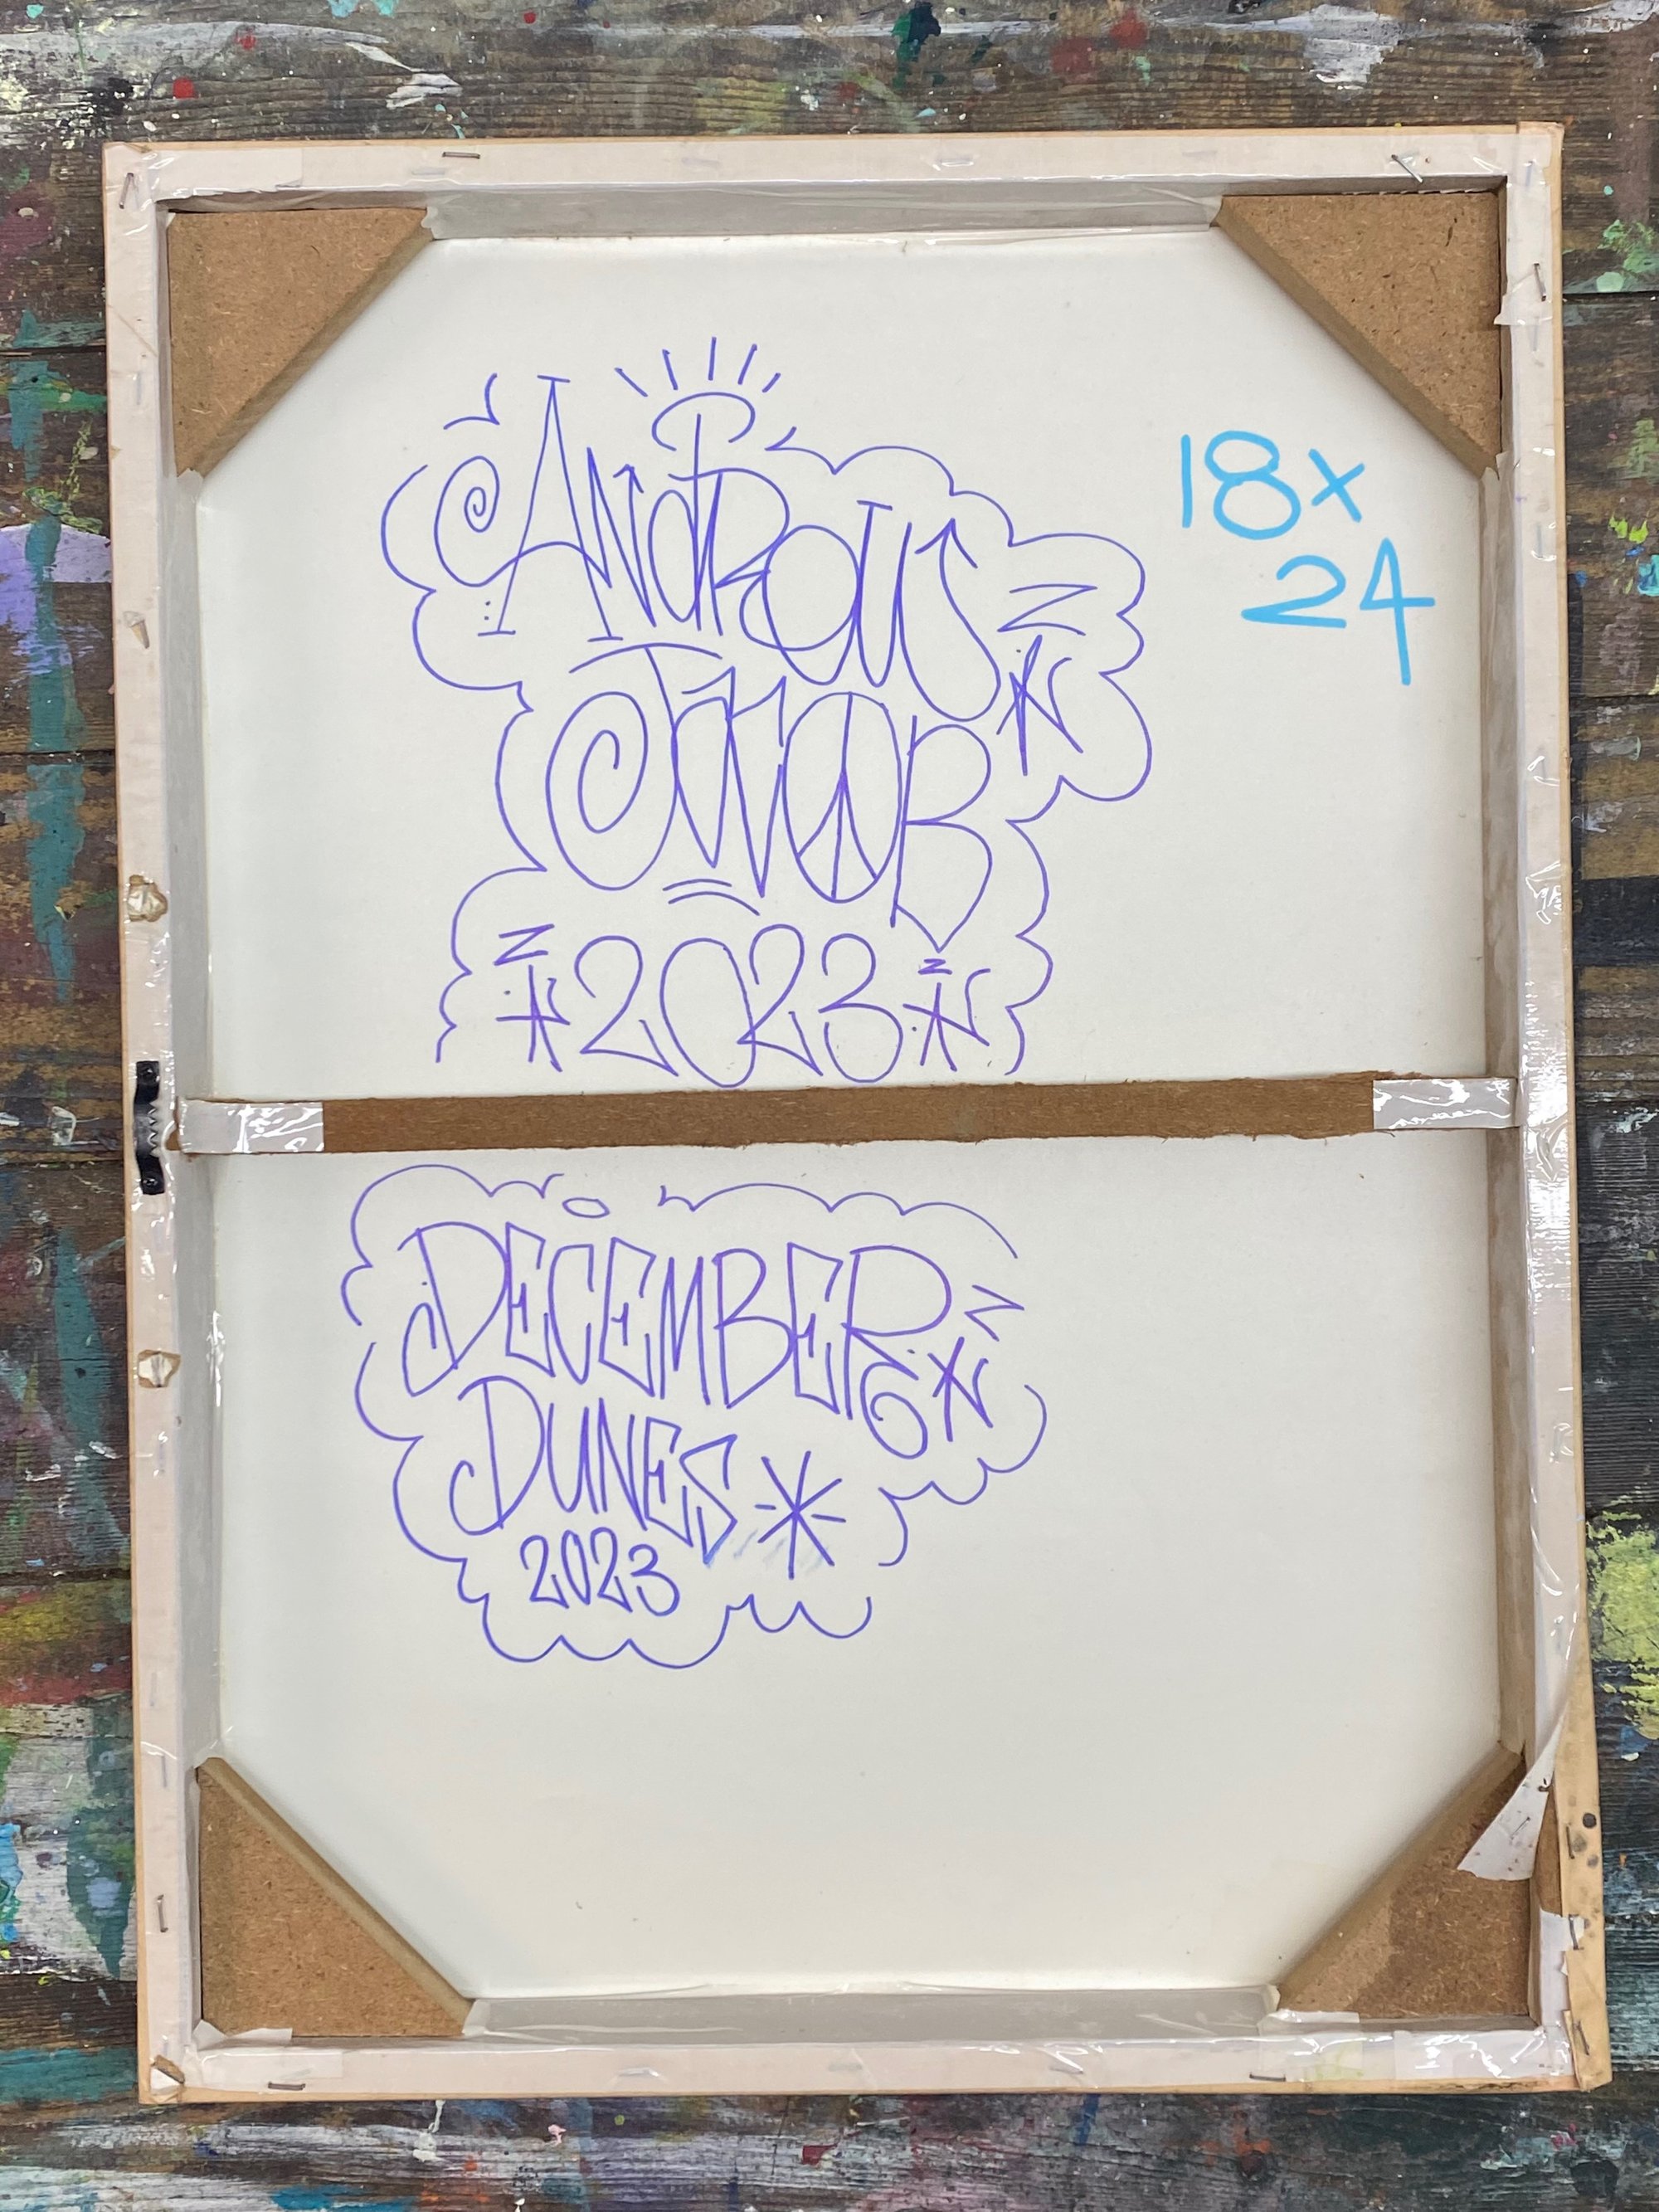 ANdROUS
TWOB
2023
18x
24
DECEMBER
DUNES
2023